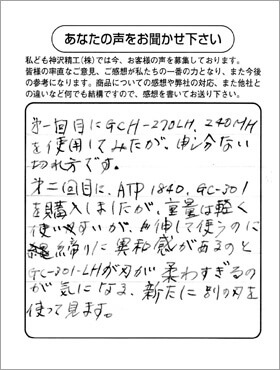 あなたの声をお聞かせ下さい
私ども神沢精工(株)では今、お客様の声を募集しております。
皆様の率直なご意見、ご感想が私たちの一番の力となり、また今後
の参考になります。商品についての感想や弊社の対応、また他社と
の違いなど何でも結構ですので、感想を書いてお送り下さい。
第一回目にGCH-270LH、240MH
を使用してみたが、申し分ない
切れ方です。
第二回目に、ATP 1840、GC-301
を購入しましたが、重量は軽く
使いやすいが、伸して使うのに
縄締りに異和感があるのと
GC-301-LHが刃が柔わすぎるの
が気になる、新たに別の刃を
使って見ます。